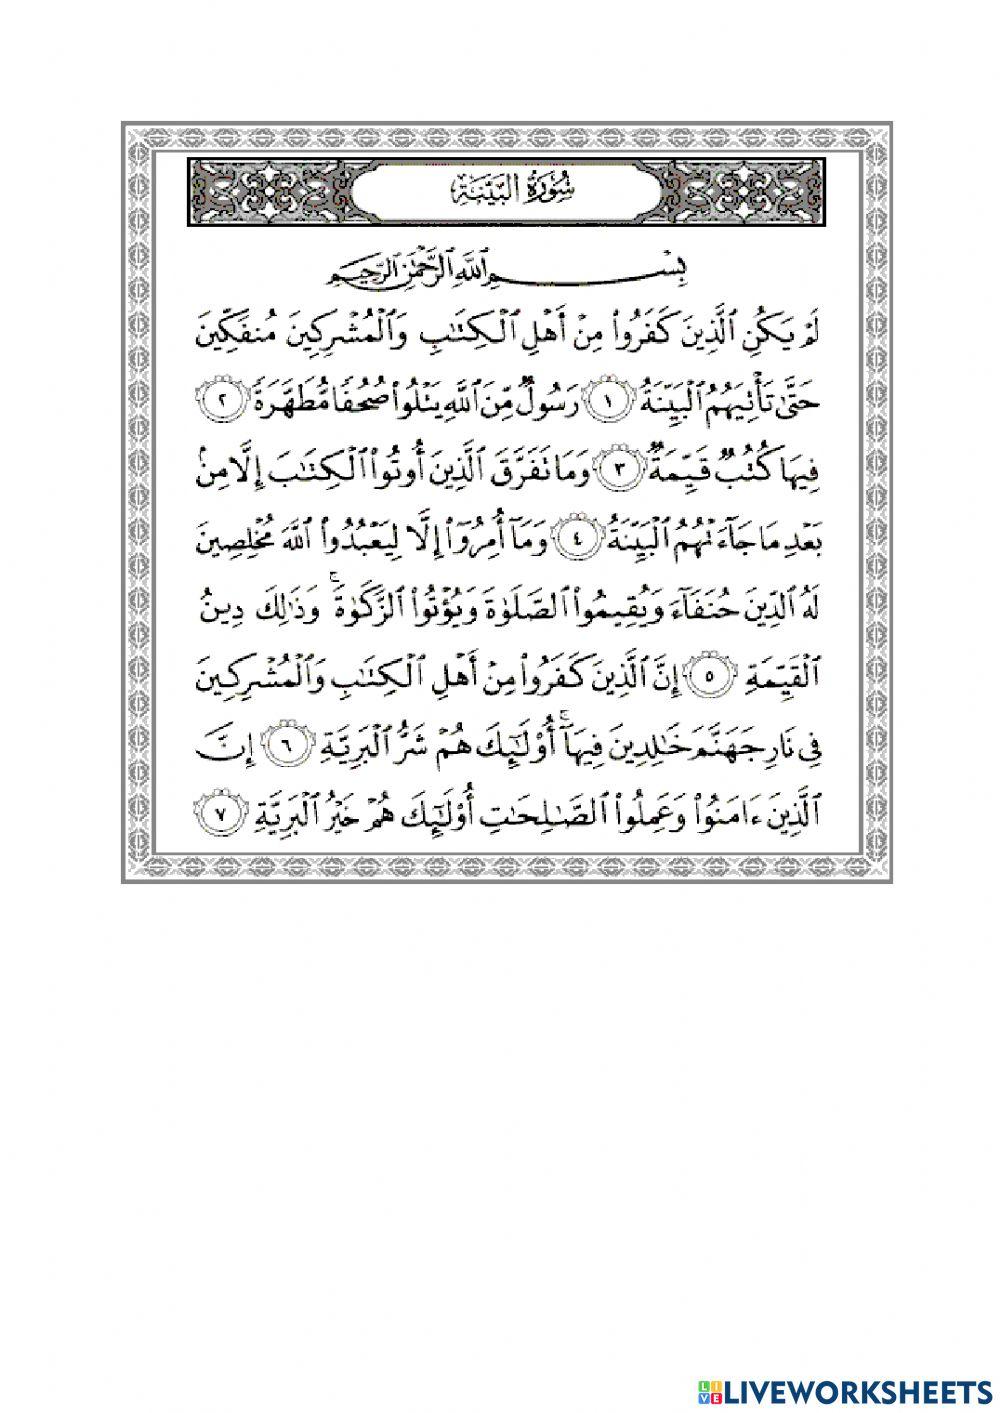 سُورَةُ الْبَيِّنَةِ
بِسْمِ ٱللَّهِ ٱلرَّحْمَٰنِ ٱلرَّحِيمِ
لَمْ يَكُنِ ٱلَّذِينَ كَفَرُوا۟ مِنْ أَهْلِ ٱلْكِتَٰبِ وَٱلْمُشْرِكِينَ مُنفَكِّينَ
حَتَّىٰ تَأْتِيَهُمُ ٱلْبَيِّنَةُ ١ رَسُولٌ مِّنَ ٱللَّهِ يَتْلُوا۟ صُحُفًا مُّطَهَّرَةً ٢
فِيهَا كُتُبٌ قَيِّمَةٌ ٣ وَمَا تَفَرَّقَ ٱلَّذِينَ أُوتُوا۟ ٱلْكِتَٰبَ إِلَّا مِنۢ
بَعْدِ مَا جَآءَتْهُمُ ٱلْبَيِّنَةُ ٤ وَمَآ أُمِرُوٓا۟ إِلَّا لِيَعْبُدُوا۟ ٱللَّهَ مُخْلِصِينَ
لَهُ ٱلدِّينَ حُنَفَآءَ وَيُقِيمُوا۟ ٱلصَّلَوٰةَ وَيُؤْتُوا۟ ٱلزَّكَوٰةَ ۚ وَذَٰلِكَ دِينُ
ٱلْقَيِّمَةِ ٥ إِنَّ ٱلَّذِينَ كَفَرُوا۟ مِنْ أَهْلِ ٱلْكِتَٰبِ وَٱلْمُشْرِكِينَ
فِى نَارِ جَهَنَّمَ خَٰلِدِينَ فِيهَآ ۚ أُو۟لَٰٓئِكَ هُمْ شَرُّ ٱلْبَرِيَّةِ ٦ إِنَّ
ٱلَّذِينَ ءَامَنُوا۟ وَعَمِلُوا۟ ٱلصَّٰلِحَٰتِ أُو۟لَٰٓئِكَ هُمْ خَيْرُ ٱلْبَرِيَّةِ ٧
LIVEWORKSHEETS